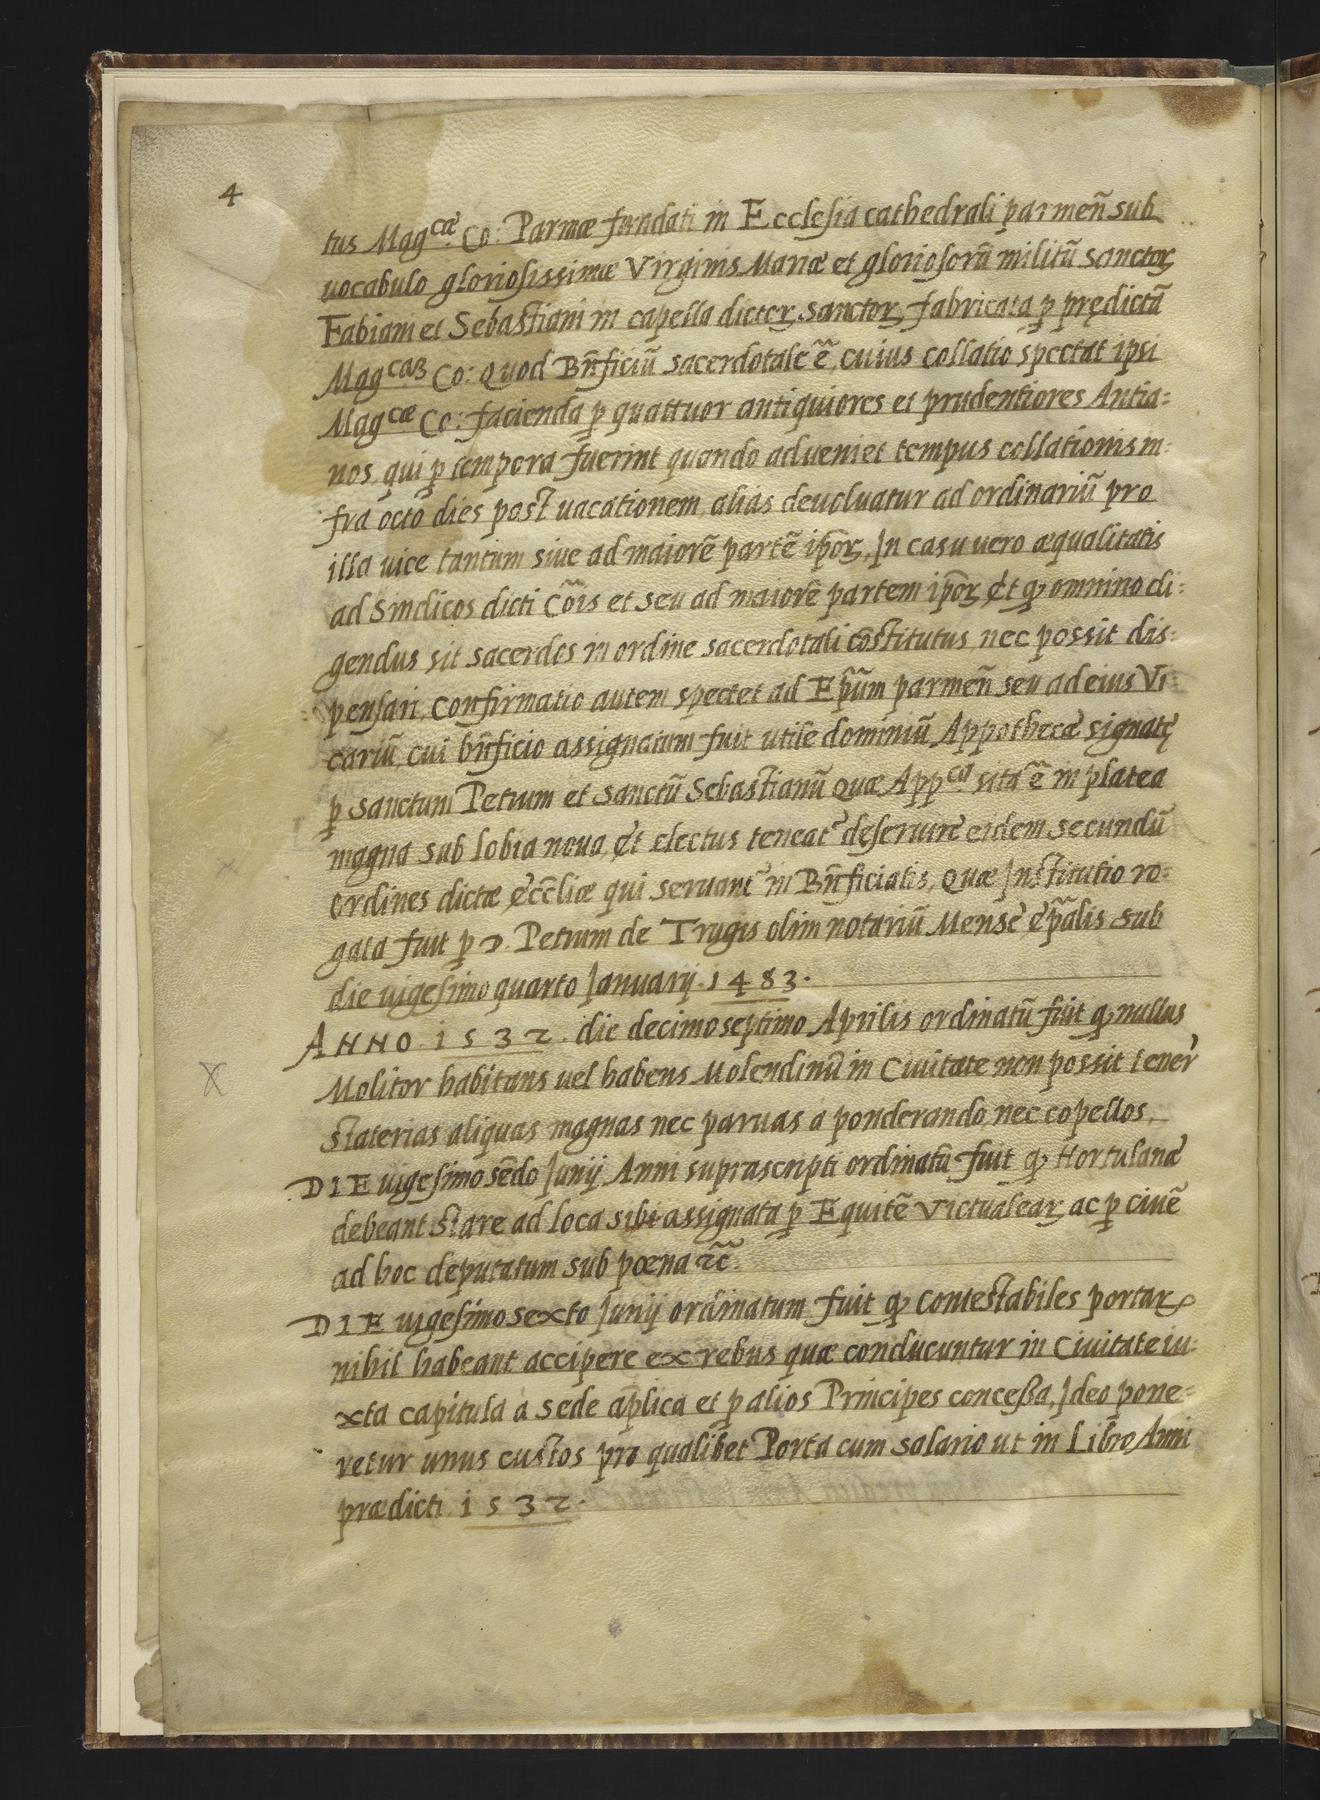 4
tus Mag^cæ. Co: Parmæ fundati in Ecclesia cathedrali parmeñ sub
uocabulo gloriosissimæ Virginis Mariæ et gloriosorũ militũ sanctoꝝ
Fabiani et Sebastiani in capella dictoꝝ sanctoꝝ fabricata ꝑ prędictã
Mag^caꝫ Co: Quod Bñficiũ sacerdotale ẽ, cuius collatio spectat ipsi
Mag^cæ Co: facienda ꝑ quattuor antiquiores et prudentiores Antia=
nos, qui ꝑ tempora fuerint quando adueniet tempus collationis in=
fra octo dies post uacationem, alias deuoluatur ad ordinariũ pro
illa uice tantum siue ad maiorẽ partẽ ip̃oꝝ, In casu uero æqualitatis
ad Sindicos dicti Cõis et seu ad maiorẽ partem ip̃oꝝ Et ꝙ omnino di=
gendus sit sacerdos in ordine sacerdotali cõstitutus, nec possit dis=
pensari, Confirmatio autem spectet ad Ep̃um parmeñ seu ad eius Vi
cariũ, cui bñficio assignatum fuit utile dominiũ Appothecæ signatę
ꝑ sanctum Petrum et sanctũ Sebastianũ Quæ App^ca. sita ẽ in platea
magna sub lobia noua, Et electus teneat᷑ deseruire eidem secundũ
ordines dictæ Eccl̃iæ qui seruant᷑ in Bñficiatis, Quæ Institutio ro=
gata fuit ꝑ D. Petrum de Trugis olim notariũ Mensę Ep̃alis sub
die uigesimo quarto Ianuarij. 1483.
ANNO. 1532. die decimoseptimo Aprilis ordinatũ fuit ꝙ nullus
Molitor habitans uel habens Molendinũ in Ciuitate non possit tener᷑
staterias aliquas magnas nec paruas a ponderando, nec copellos,
DIE uigesimo sc̃do Iunij Anni suprascripti ordinatũ fuit ꝙ Hortulanæ
debeant stare ad loca sibi assignata ꝑ Equitẽ Victualeaꝝ, ac ꝑ ciuẽ
ad hoc deputatum sub pœna ⁊c̃.
DIE uigesimosexto Iunij ordinatum fuit ꝙ Contestabiles portaꝝ
nihil habeant accipere ex rebus quæ conducuntur in Ciuitate iu=
xta capitula a sede ap̃lica et ꝑ alios Principes conceßa, Ideo pone=
retur unus custos pro qualibet Porta cum salario ut in Libro Anni
prædicti. 1532.